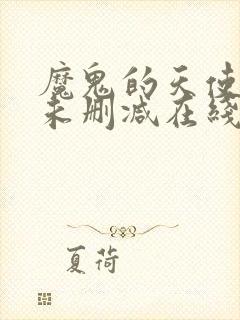 魔鬼的天使
未删减在线
夏荷